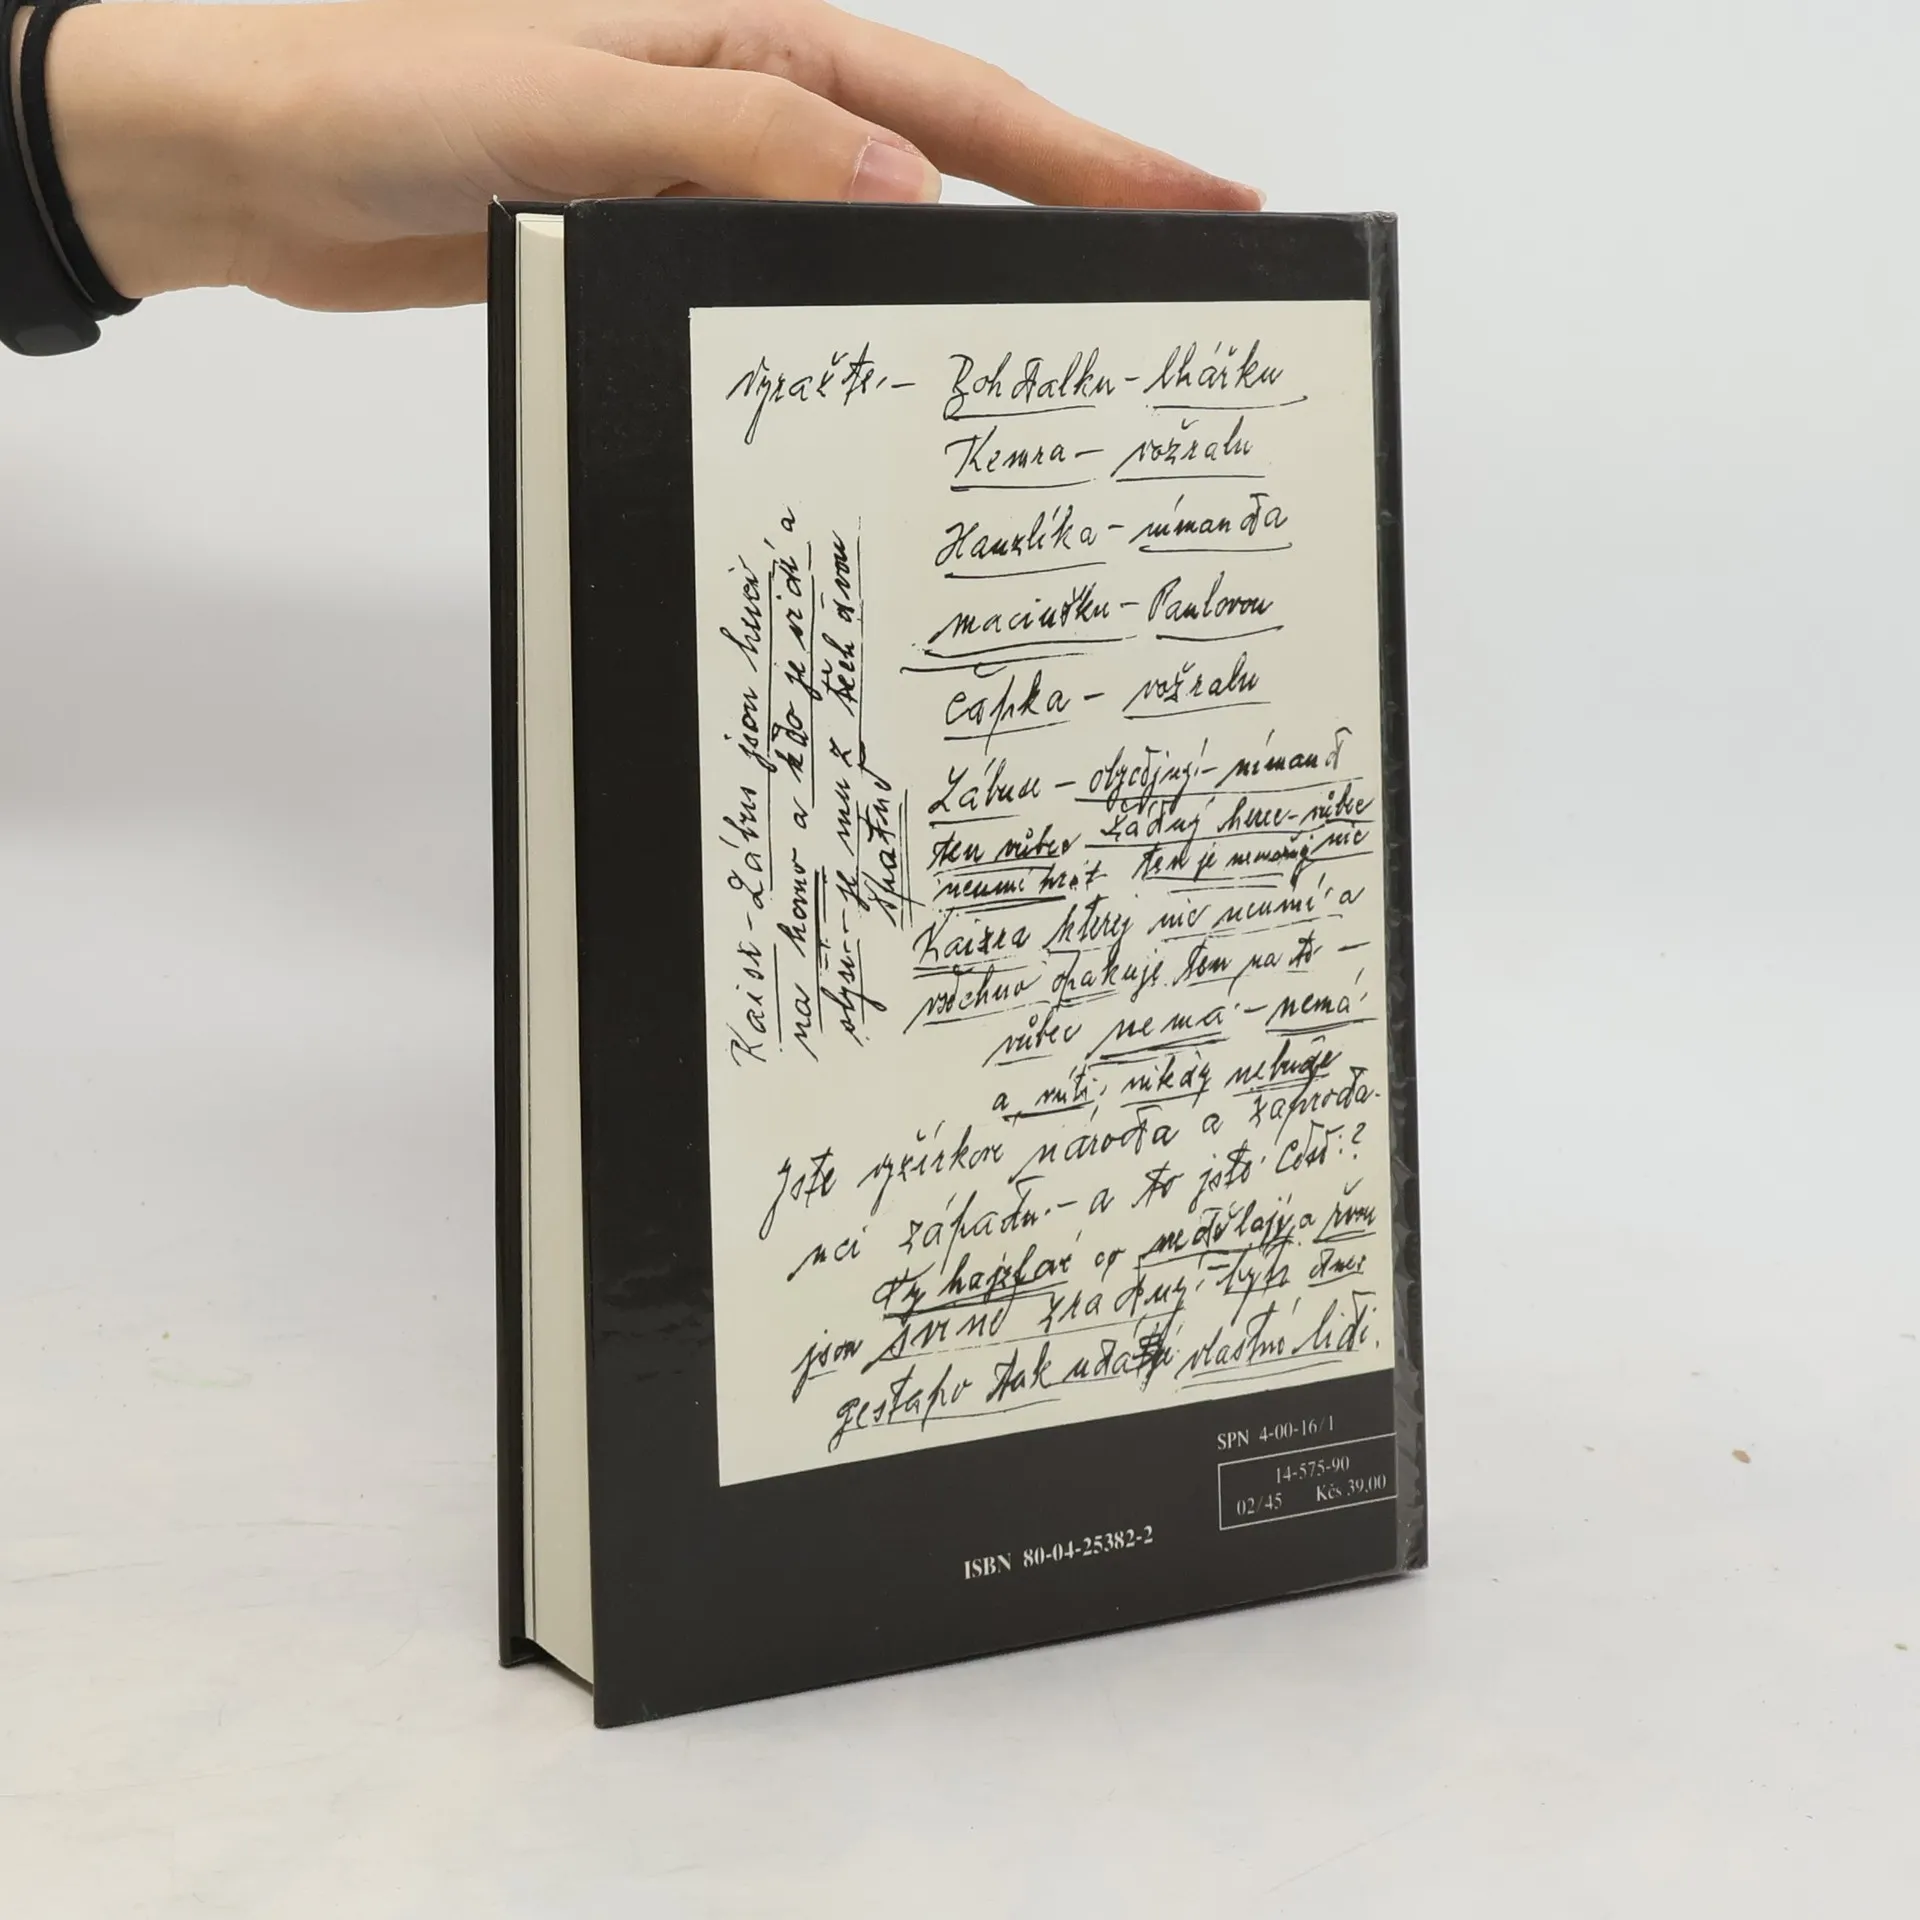 Vyražte.- Bohdalku - lhářku
Kemra - vožralu
Hanzlíka - nímanda
maciušku - Pavlovou
Čapka - vožralu
Zábuse - obyčdjný - nímand
ten vůbec žádný herec - vůbec
neumí hrát ten je nemožný nic
Kaizra kterej nic neumí a
vsdchno opakuje tem na to -
vůbec nemá - nemá
a nikdy nebude
Jste vyžírkové národa a zaproda-
nci západu.- a to jsté ?
ty hajzlové co nedělají a řvou
jsou svině zrádný - dnes
gestapo tak udá vlastné lidi.
Kaisr - Zábus jsou herci
na hovno a kdo je vidí a
slyší - je mu z těch dvou
špatně
SPN 4-00-16/1
14-575-90
02/45 Kčs 39,00
ISBN 80-04-25382-2